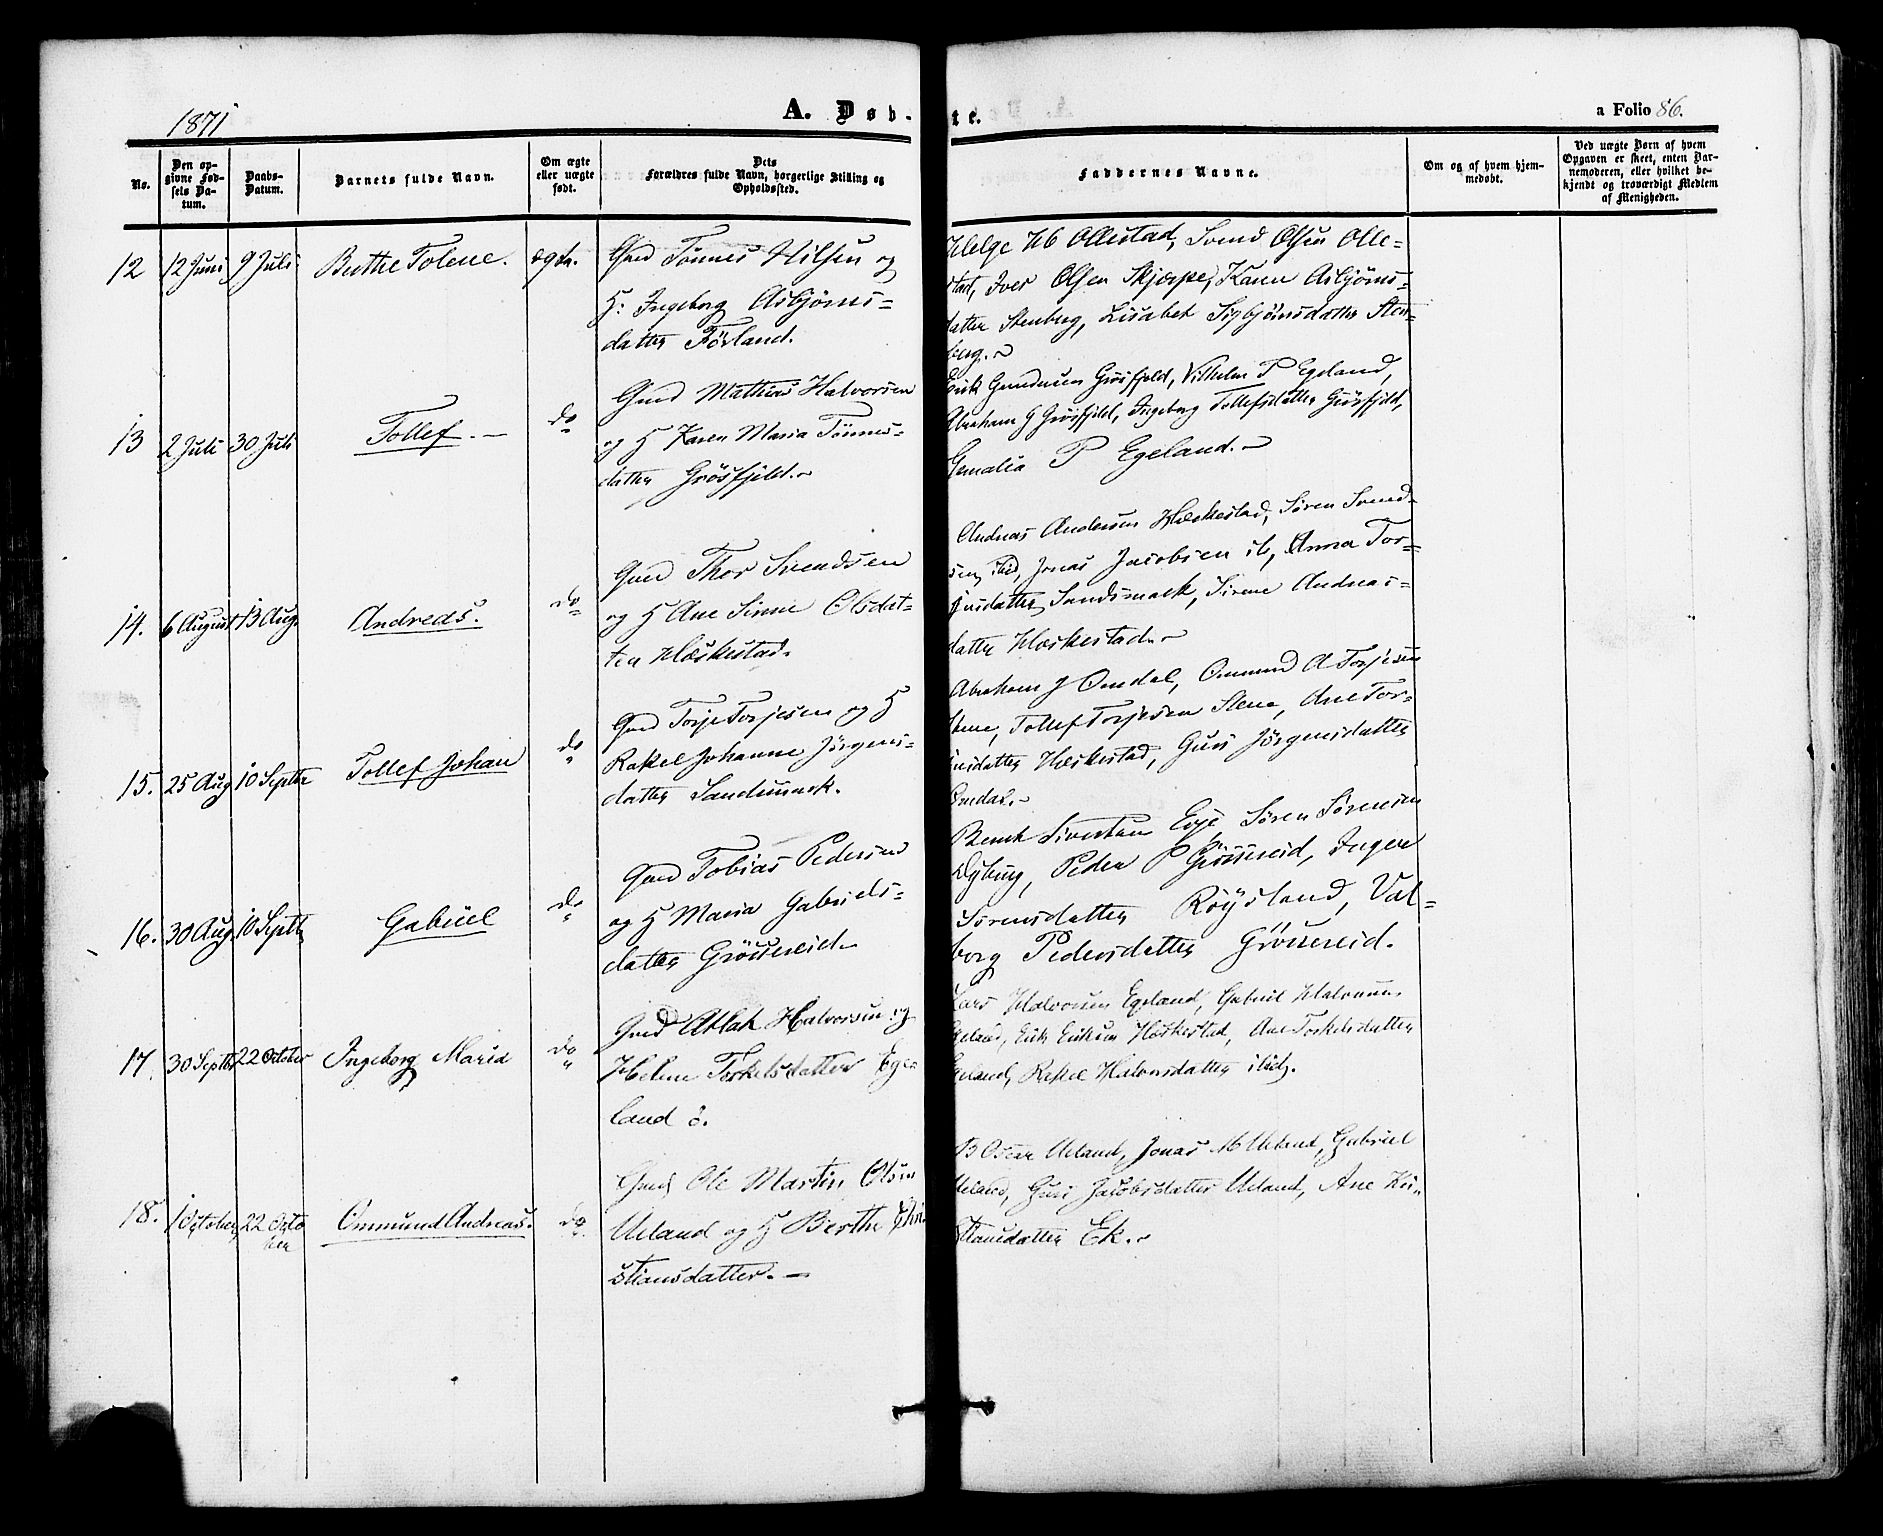 1871
A. Døb-
te.
a Folio 86.
No.
Den op-
givne Fød-
sels Da-
tum.
Daabs-
Datum.
Barnets fulde Navn.
Om ægte
eller uægte
født.
Dets
Forældres fulde Navn, borgerlige Stilling og
Opholdssted.
Faddernes Navne.
Om og af hvem hjem-
medøbt.
Ved uægte Børn af hvem
Opgaven er skeet, enten Bar-
nemoderen, eller hvilket be-
kjendt og troværdigt Medlem
af Menigheden.
12
12 Juni
9 Juli
Berthe Tolene.
ægte.
Gmd Tönnes Nilsen og
H: Ingeborg Asbjörns-
datter Förland.
Helge Hb Ollestad, Svend Olsen Olle-
stad, Iver Olsen Skjærpe, Karen Asbjörns-
datter Stenberg, Lisabet Sigbjörnsdatter Sten-
berg.
13
2 Juli
30 Juli
Tollef.
do
Gmd Mathias Halvorsen
og H Karen Maria Tönnes-
datter Grösfjeld.
Erik Gundersen Grösfjeld, Vilhelm P Egeland,
Abraham G Grösfjeld, Ingeborg Tollefsdatter Grösfjeld,
P Egeland.
14.
6 August
13 Aug.
Andreas.
do
Gmd Thor Svendsen
og H Ane Sirine Olsdat-
ter Hæskestad.
Andreas Andersen Hæskestad, Sören Svend-
sen ibid, Jonas Jacobsen ib, Anna Tor-
jusdatter Sandsmark, Sirene Andreas-
datter Hæskestad.
15.
25 Aug
10 Septbr
Tollef Johan
do
Gmd Torje Torjesen og H
Rakel Johanne Jörgens-
datter Sandsmark.
Abraham J Omdal, Ommund A Torjesen
Stene, Tollef Torjesen Stene, Ane Tor-
jusdatter Hæskestad, Guri Jörgensdatter
Omdal.
16.
30 Aug.
10 Septb
Gabriel
do
Gmd Tobias Pedersen
og H Maria Gabriels-
datter Grösereid.
Bernt Sivertsen Eje Sören Sörensen
Dybing, Peder P Grösereid, Inger
Sörensdatter Röysland, Val-
borg Pedersdatter Grösereid.
17.
30 Septbr
22 October
Ingeborg Maria
do
Gmd Atlak Halvorsen og
Helene Torkelsdatter Ege-
land ö.
Lars Halvorsen Egeland, Gabriel Halvorsen
Egeland, Erik Eriksen Hæskestad, Ane Torkelsdatter
Egeland, Rakel Halvorsdatter ibid.
18.
1 October
22 Octo
ber
Ommund Andreas.
do
Gmd Ole Martin Olsen
Ueland og H Berthe Chri-
stiansdatter.
B Oscar Ueland, Jonas M Ueland, Gabriel
Ueland, Guri Jacobsdatter Ueland, Ane Kri-
stiansdatter Ek.